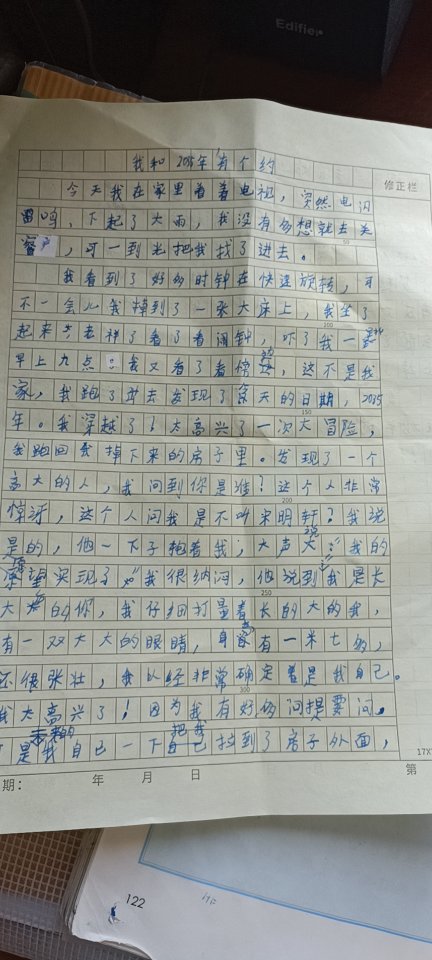 Edifier
我和2035年有个约
修正栏
今天我在家里看着电视，突然电闪
雷鸣，下起了大雨，我没有多想就去关
窗户，可一到光把我找了进去。
50
我看到了好多时钟在快速旋转，可
不一会儿我掉到了一张大床上，我坐了
起来 了看了看闹钟，吓了我一
200
早上九点 我又看了看 ，这不是我
家，我跑了 去发现了 天的日期，2035
150
年。我穿越了！太高兴了一次大冒险，
我跑回我掉下来的房子里。发现了一个
高大的人，我问到你是谁？这个人非常
200
惊讶，这个人问我是不叫宋明轩？我说
是的，他一下子抱着我，大声大说：“我的
愿望实现了”我很纳闷，他说到我是长
250
大 的你，我仔细打量着长的大的我，
有一双大大的眼睛，身高有一米七多，
还很张壮，我以经非常确定着是我自己。
300
我太高兴了！因为我有好多问提要问。
是未来的我自己一下把我拉到了房子外面，
17X
期： 年 月 日 第
122